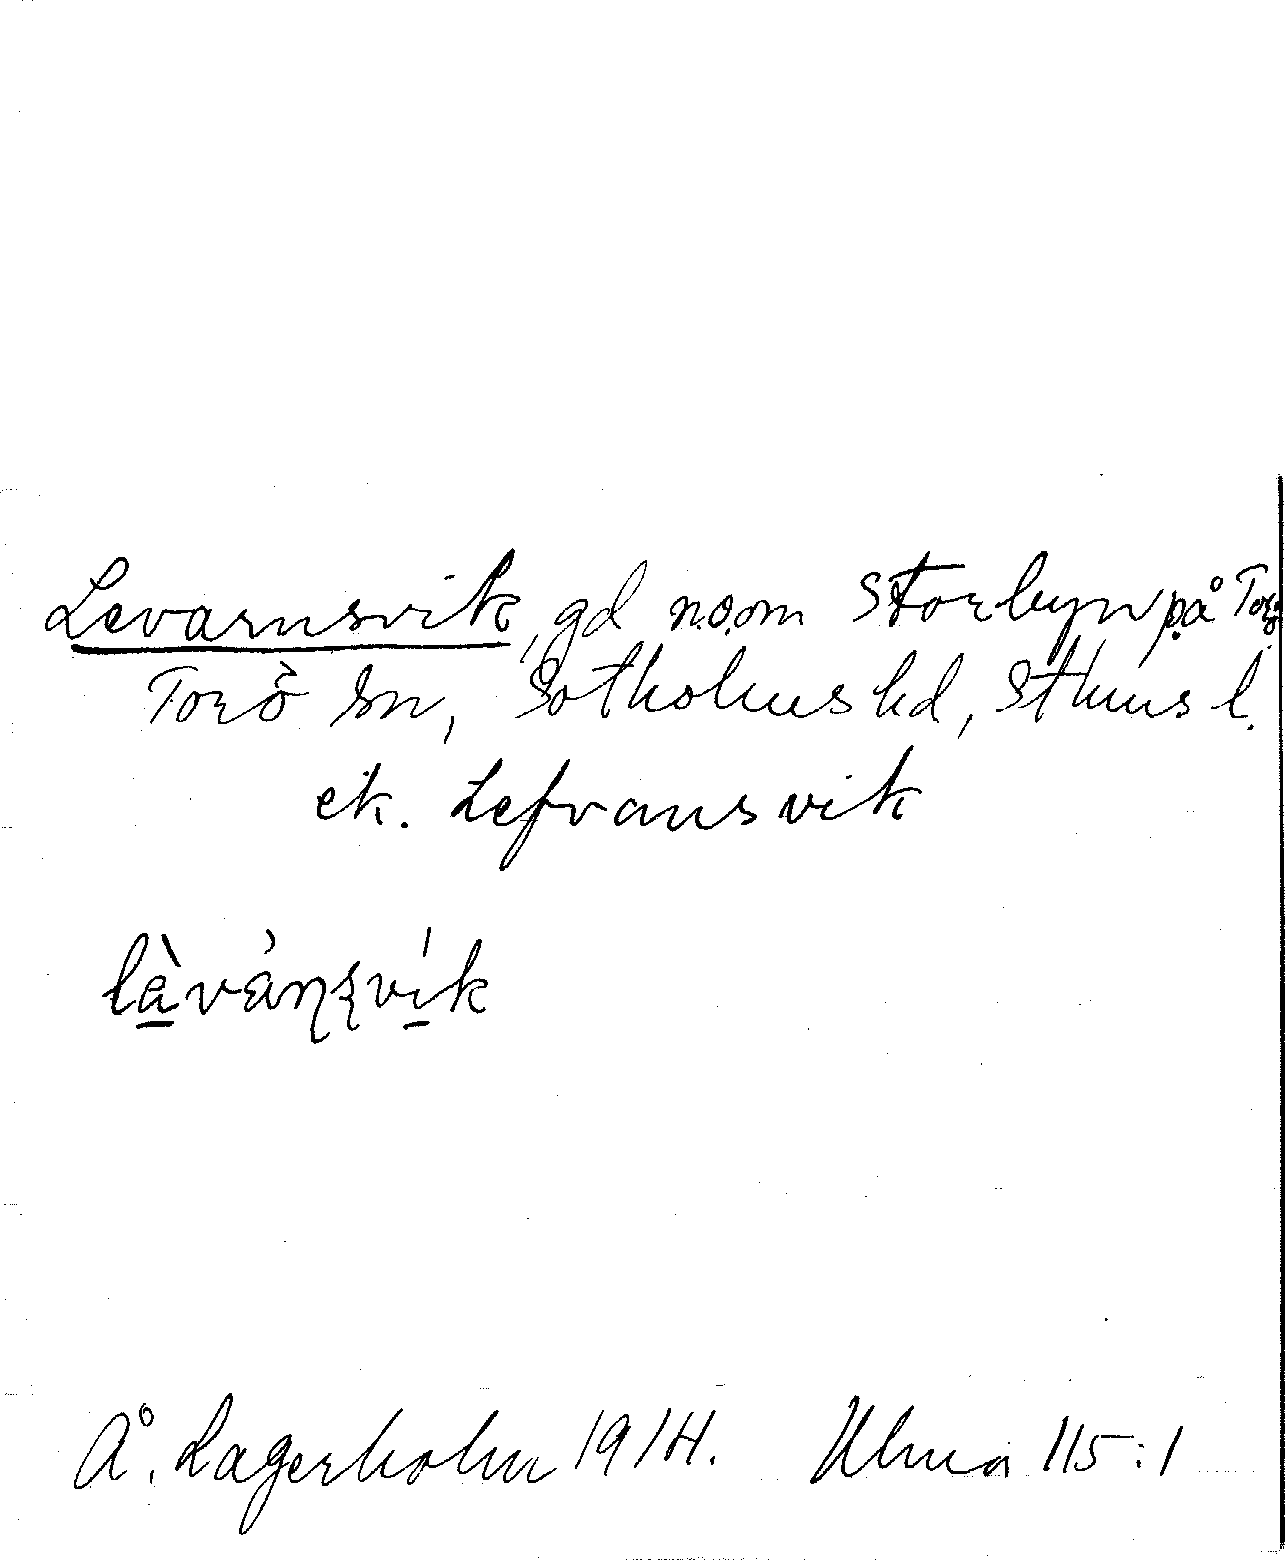 Levarnsvik, gd n.o.om Storbyn på Torö
Torö sn, Sotholms hd, Sthms l.
ek. Lefvansvik
là̱vάɳʂvί̱k
Å. Lagerholm 1914. Ulma 115:1